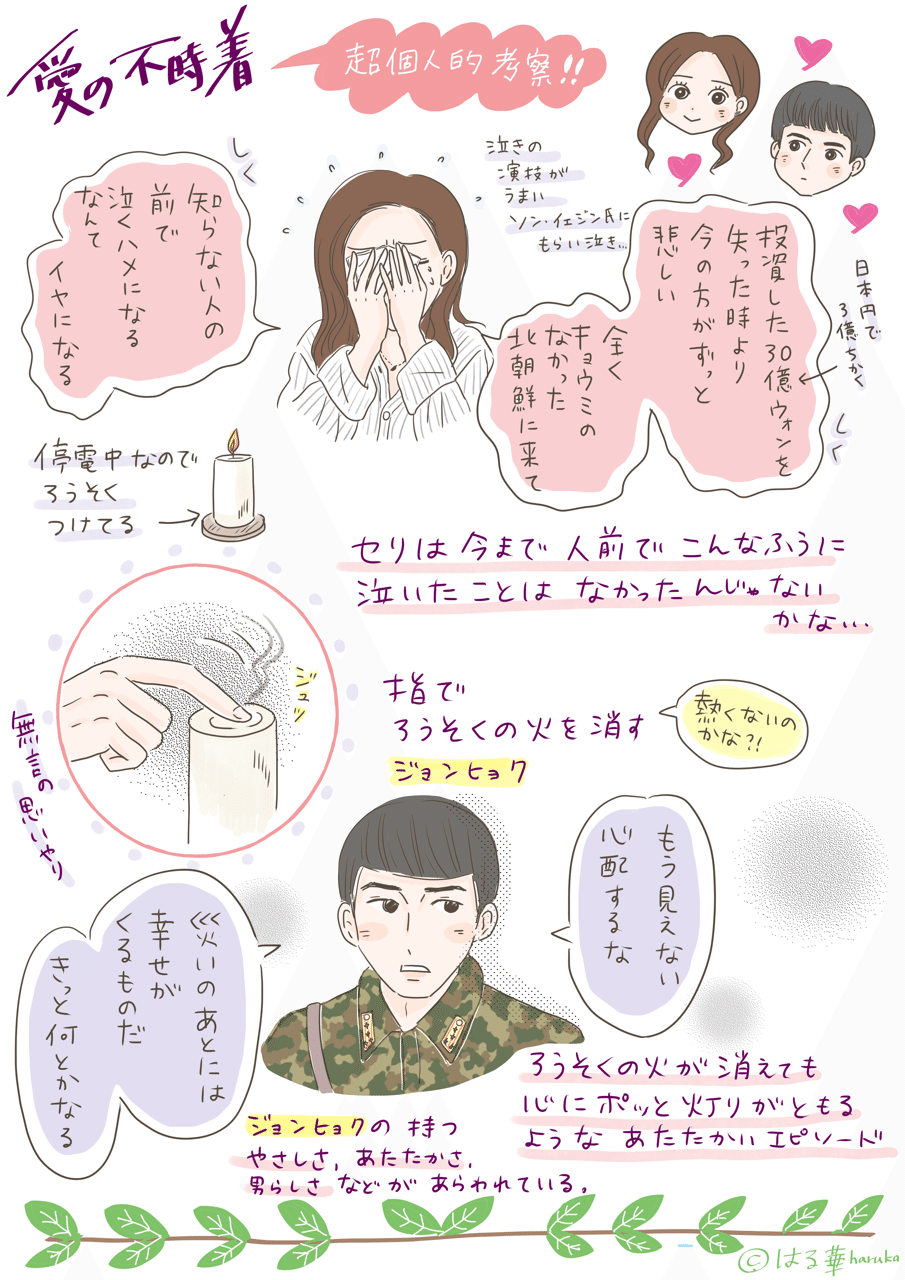 愛の不時着
超個人的考察!!
泣きの
演技が
うまい
ソン・イェジン氏に
もらい泣き…
しく
投資した30億ウォンを
失った時より
今の方がずっと
悲しい
日本円で
3億ちかく
全く
キョウミの
なかった
北朝鮮に来て
しく
知らない人の
前で
泣くハメになる
なんて
イヤになる
停電中なので
ろうそく
つけてる
セリは今まで人前でこんなふうに
泣いたことはなかったんじゃない
かな…
ジュッ
無言の思いやり
指で
ろうそくの火を消す
ジョンヒョク
熱くないの
かな?!
もう見えない
心配するな
災いのあとには
幸せが
くるものだ
きっと何とかなる
ろうそくの火が消えても
心にポッと灯りがともる
ような あたたかいエピソード
ジョンヒョクの持つ
やさしさ、あたたかさ、
男らしさなどがあらわれている。
©はる華haruka